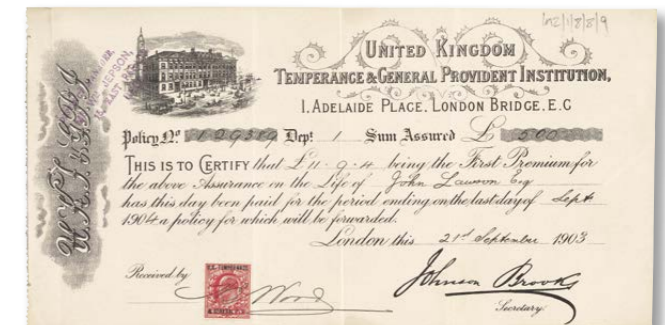 ins/1/8/8/9
UNITED KINGDOM
TEMPERANCE & GENERAL PROVIDENT INSTITUTION,
1. ADELAIDE PLACE. LONDON BRIDGE. E.C
Policy No 129589 Dept 1 Sum Assured £ 500
THIS IS TO CERTIFY that £11-9-4 being the First Premium for
the above Assurance on the Life of John Lawson Esq
has this day been paid for the period ending on the last day of Sept
1904 a policy for which will be forwarded.
London this 21st September 1903
Received by
Wood
Johnson Brooks
Secretary